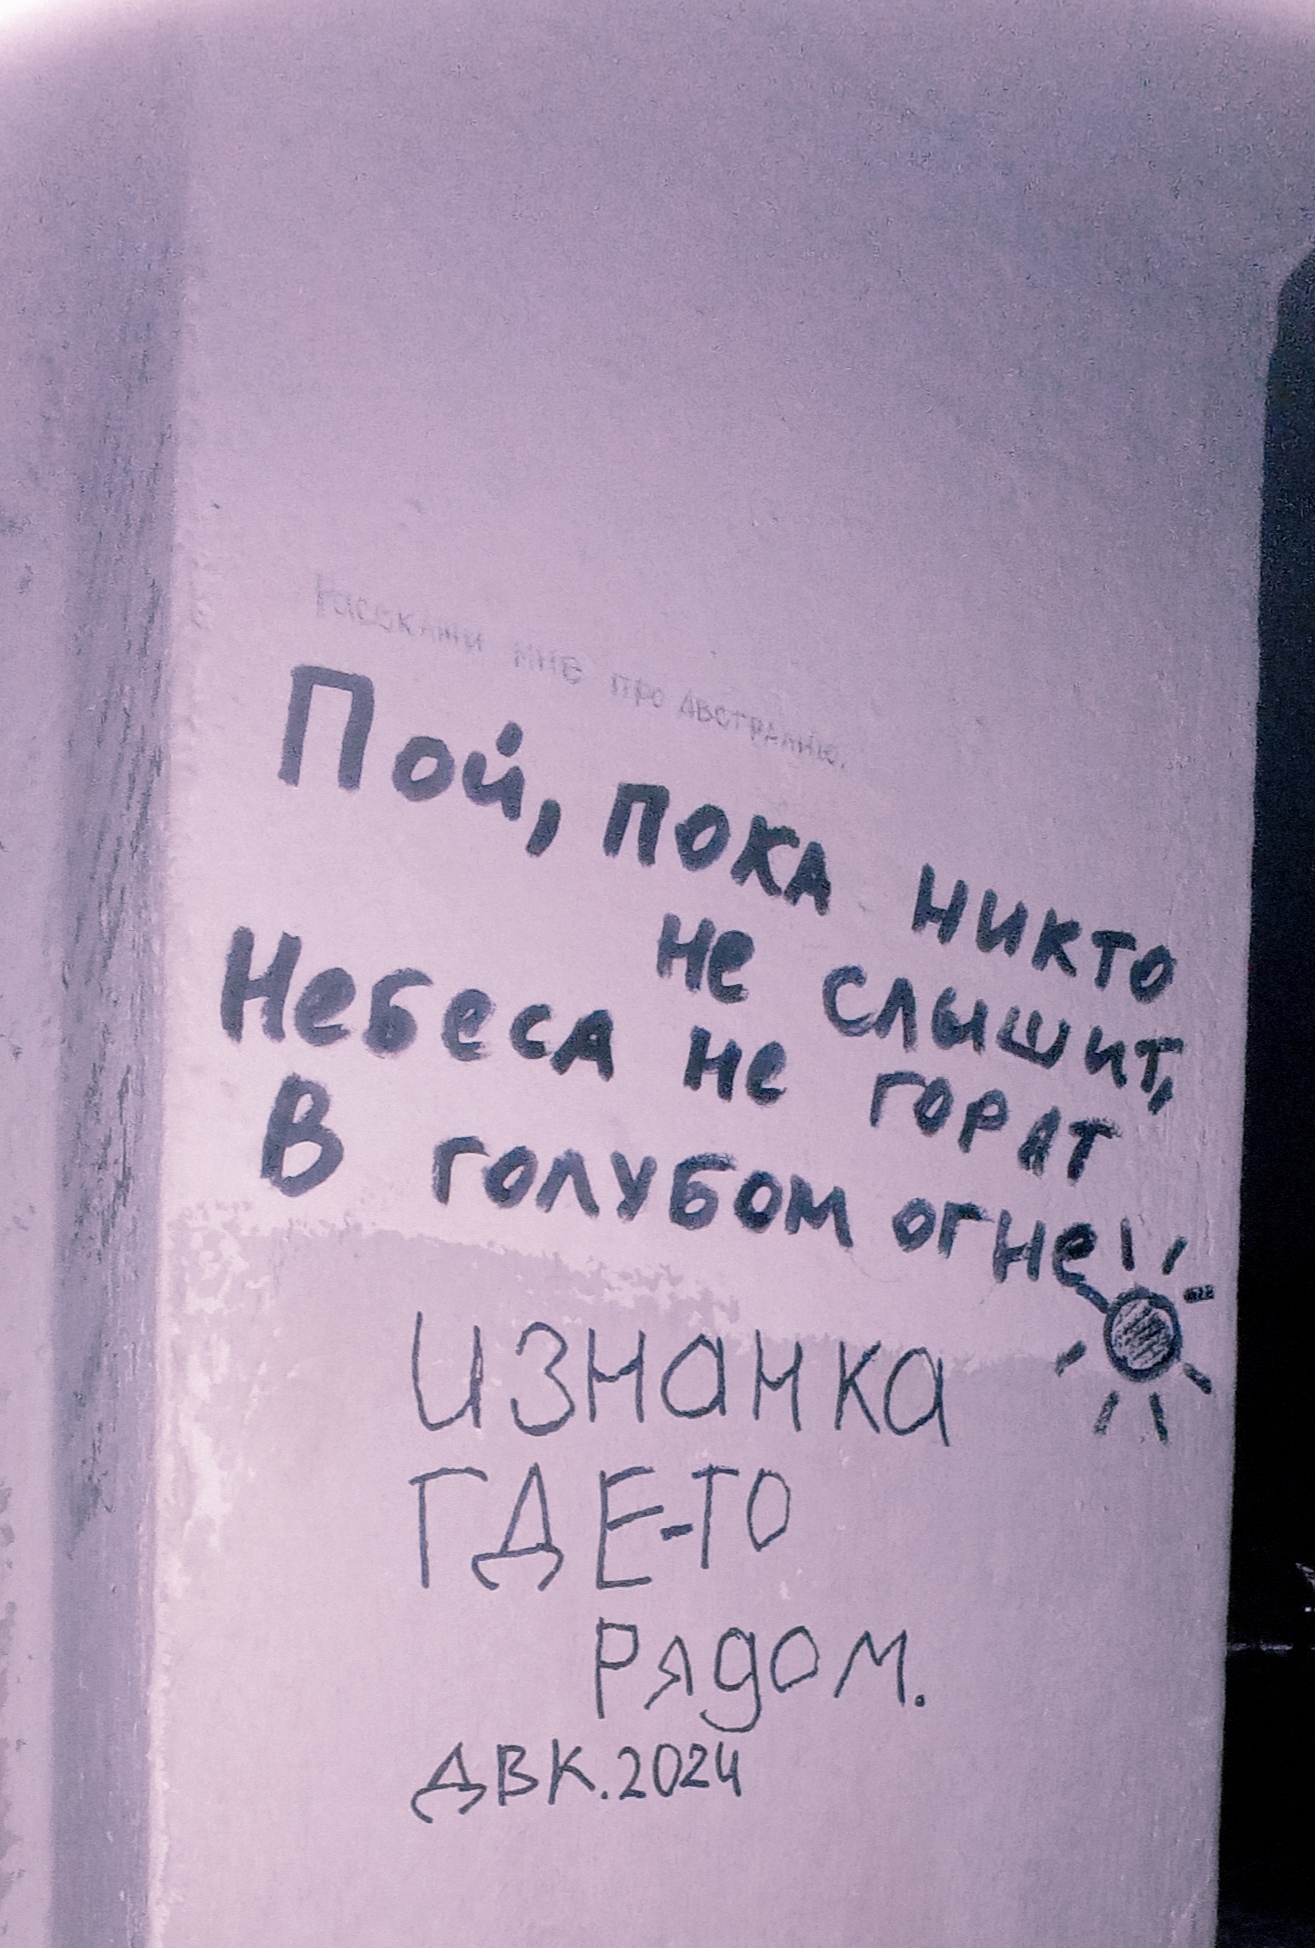 Расскажи мне про Австралию.
Пой, пока никто
не слышит,
Небеса не горят
В голубом огне
ИЗНАНКА
ГДЕ-ТО
рядом.
ДВК.2024